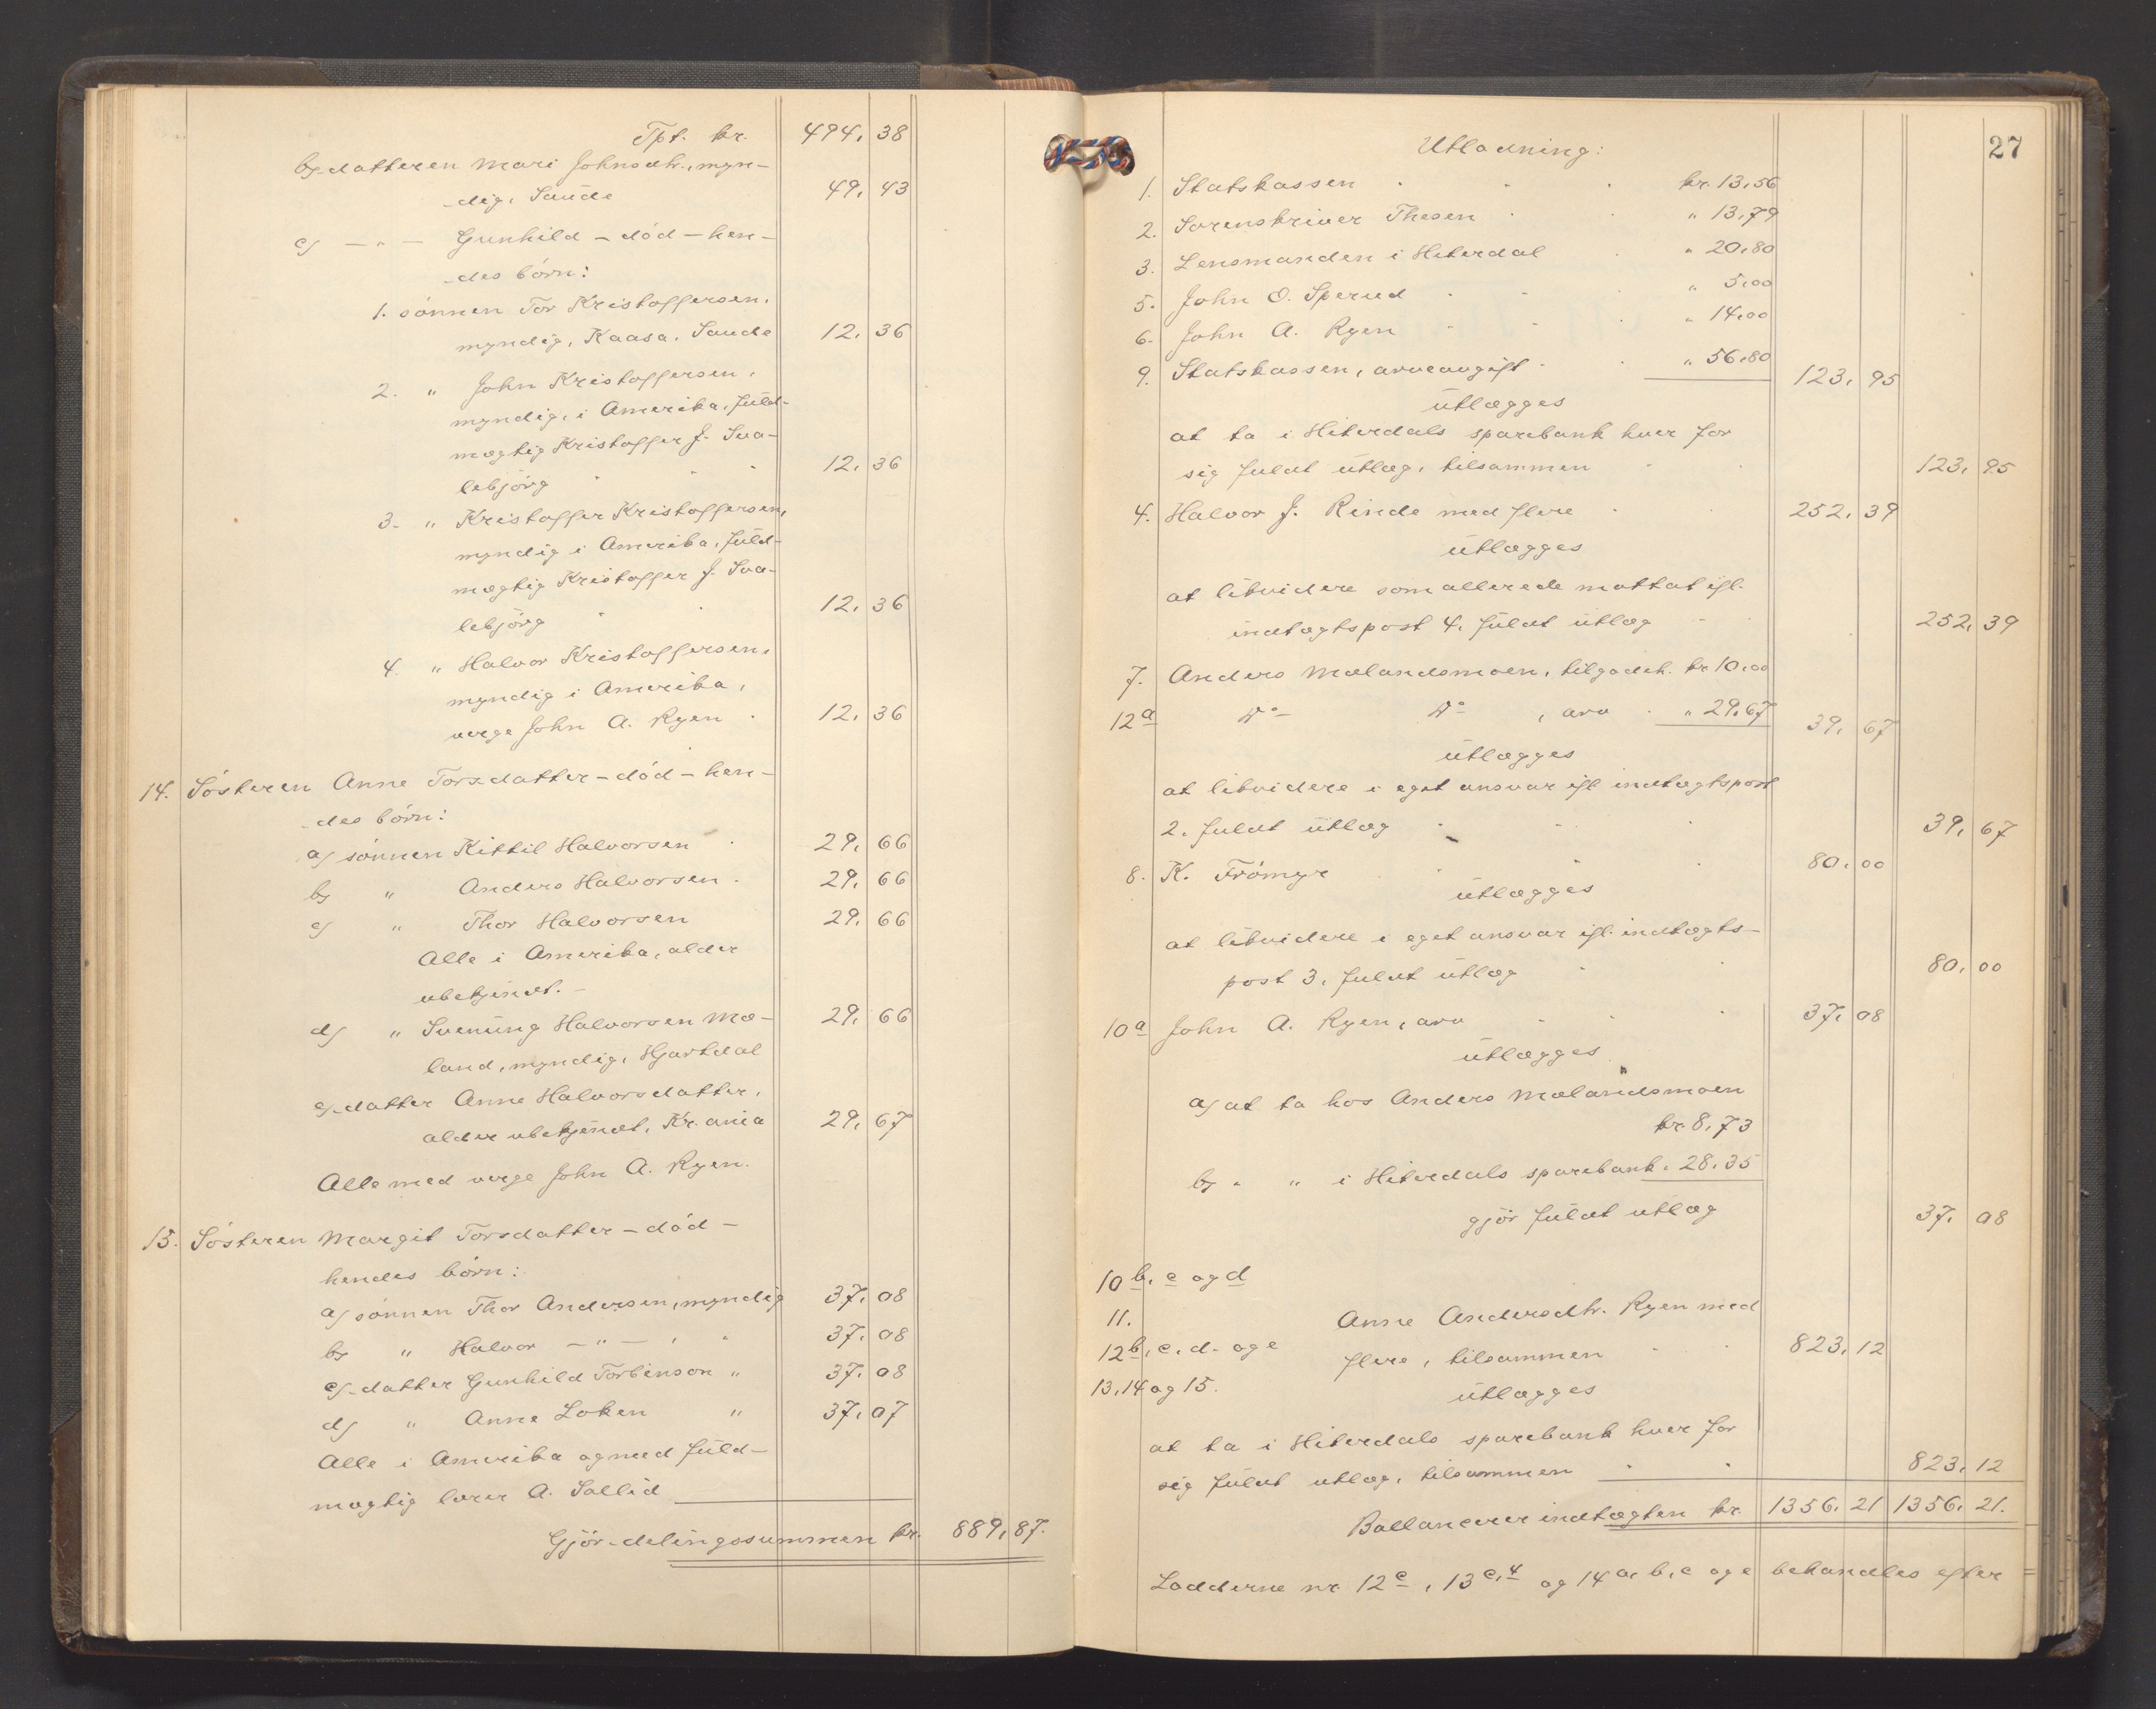 Tpt. kr. 494, 38
b) datteren Mari Johnsdtr., myn-
dig, Saude 49, 43
c) — „ — Gunhild – död – hen-
des börn:
1. sönnen Tor Kristoffersen,
myndig, Kaasa, Saude 12, 36
2. „ John Kristoffersen,
myndig, i Amerika, fuld-
mægtig Kristoffer J. Sva-
lebjörg 12, 36
3. „ Kristoffer Kristoffersen,
myndig i Amerika, fuld-
mægtig Kristoffer J. Sva-
lebjörg 12, 36
4. „ Halvor Kristoffersen,
myndig i Amerika,
verge John A. Ryen 12, 36
14. Sösteren Anne Torsdatter – död – hen-
des börn:
a) sönnen Kittil Halvorsen 29, 66
b) „ Anders Halvorsen 29, 66
c) „ Thor Halvorsen 29, 66
Alle i Amerika, alder
ubekjendt. –
d) „ Svenung Halvorsen Mæ- 29, 66
land, myndig, Hjartdal
e) datter Anne Halvorsdatter,
alder ubekjendt, Kr.ania 29, 67
Alle med verge John A. Ryen.
15. Sösteren Margit Torsdatter – död –
hendes börn:
a) sönnen Thor Andersen, myndig 37, 08
b) „ Halvor — „ — , „ 37, 08
c) datter Gunhild Torbinson „ 37, 08
d) „ Anne Loken „ 37, 07
Alle i Amerika og med fuld-
mægtig lærer A. Sollid
Gjör delingssummen kr. 889, 87.
27
Utlodning:
1. Statskassen kr. 13,56
2. Sorenskriver Thesen „ 13,79
3. Lensmanden i Hiterdal „ 20,80
5. John O. Sperud „ 5,00
6. John A. Ryen „ 14,00
9. Statskassen, arveavgift „ 56,80 123, 95
utlægges
at ta i Hiterdals sparebank hver for
sig fuldt utlæg, tilsammen 123, 95
4. Halvor J. Rinde med flere 252, 39
utlægges
at likvidere som allerede mottat ifl.
indtægtspost 4, fuldt utlæg 252, 39
7. Anders Mælandsmoen, tilgodeh. kr 10,00
12a Do Do , arv „ 29,67 39, 67
utlægges
at likvidere i eget ansvar ifl. indtægtspost
2, fuldt utlæg 39, 67
8. K. Frömyr 80, 00
utlægges
at likvidere i eget ansvar ifl. indtægts-
post 3, fuldt utlæg 80, 00
10a John A. Ryen, arv 37, 08
utlægges
a) at ta hos Anders Mælandsmoen
kr. 8,73
b) „ „ i Hiterdals sparebank „ 28,35
gjör fuldt utlæg 37, 08
10 b, c og d
11. Anne Andersdtr. Ryen med
12 b, c, d. og e flere, tilsammen 823, 12
13, 14 og 15. utlægges
at ta i Hiterdals sparebank hver for
sig fuldt utlæg, tilsammen 823, 12
Ballancerer indtægten kr. 1356, 21 1356, 21.
Lodderne nr 12c, 13c,4 og 14 a, b, c og e behandles efter